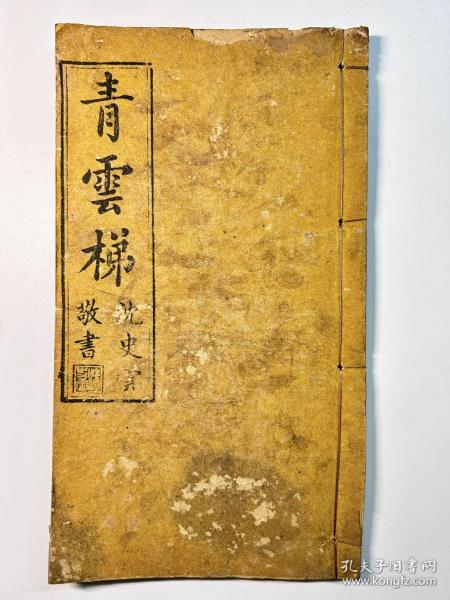 青雲梯
沈史
敬書
孔夫子旧书网
www.kongfz.com